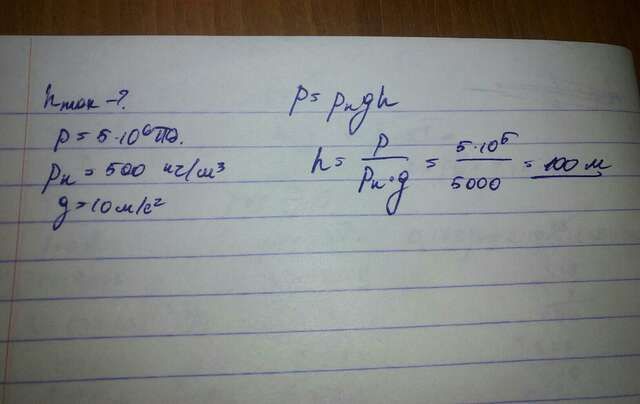 hмак -?
p = 5·10⁶Па.
ρк = 500 кг/м³
g = 10 м/с²
p = ρк g h
h = p / ρк·g = 5·10⁵ / 5000 = 100 м